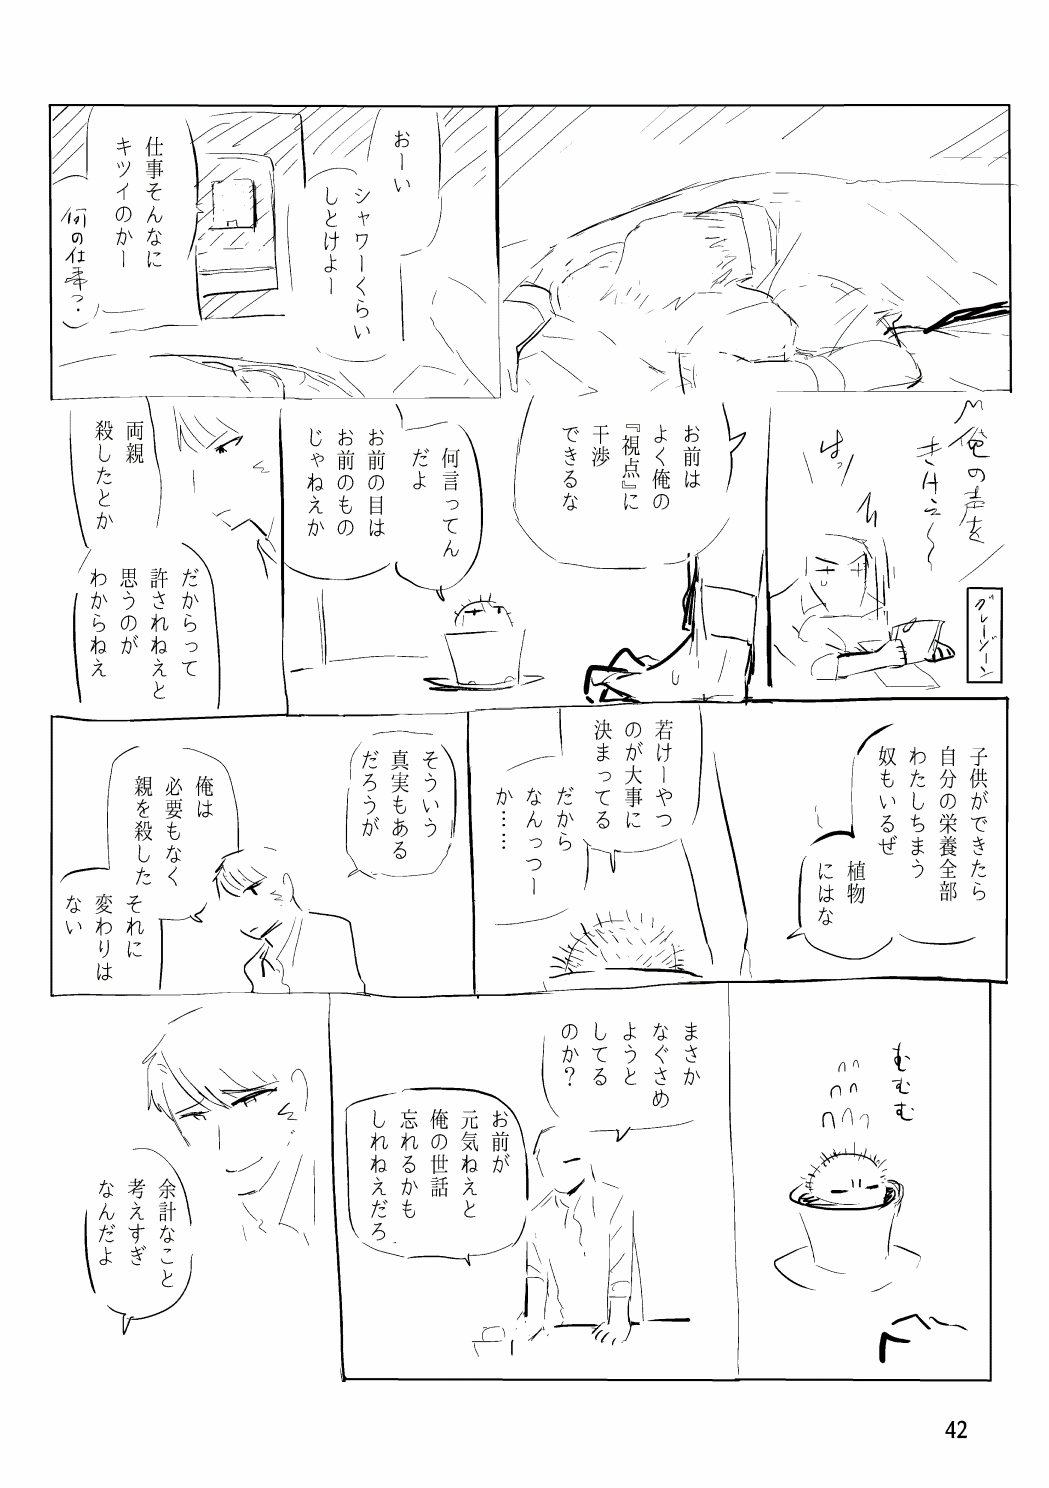 おーい
シャワーくらい
しとけよー
仕事そんなに
キツイのかー
何の仕事?
俺の声を
きけぇ〜
はっ
グレーゾーン
お前は
よく俺の
『視点』に
干渉
できるな
何言ってん
だよ
お前の目は
お前のもの
じゃねえか
両親
殺したとか
だからって
許されねえと
思うのが
わからねえ
子供ができたら
自分の栄養全部
わたしちまう
奴もいるぜ
植物
にはな
若けーやつ
のが大事に
決まってる
だから
なんっつー
か……
そういう
真実もある
だろうが
俺は
必要もなく
親を殺した
それに
変わりは
ない
むむむ
まさか
なぐさめ
ようと
してる
のか?
お前が
元気ねえと
俺の世話
忘れるかも
しれねえだろ
余計なこと
考えすぎ
なんだよ
42